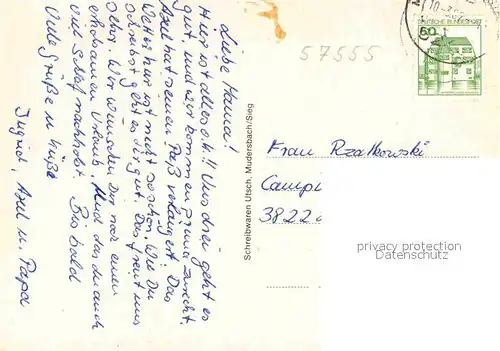 Liebe Hanna!
Hier ist alles o.k.!! Uns drei geht es
gut und wir kommen prima zurecht.
Axel hat seinen Paß verlängert. Das
Wetter hier ist nicht so schön. Wie Du
schreibst geht es dir gut. Das freut uns
sehr. Wir wünschen Dir noch einen
erholsamen Urlaub. und das du auch
viel Schlaf nachholst. Bis bald
Viele Grüße u. Küße
Ingrid, Axel u. Papa
Schreibwaren Utsch, Mudersbach/Sieg
57555
DEUTSCHE BUNDESPOST
Frau Rzatkowski
Camp
3822
privacy protection
Datenschutz